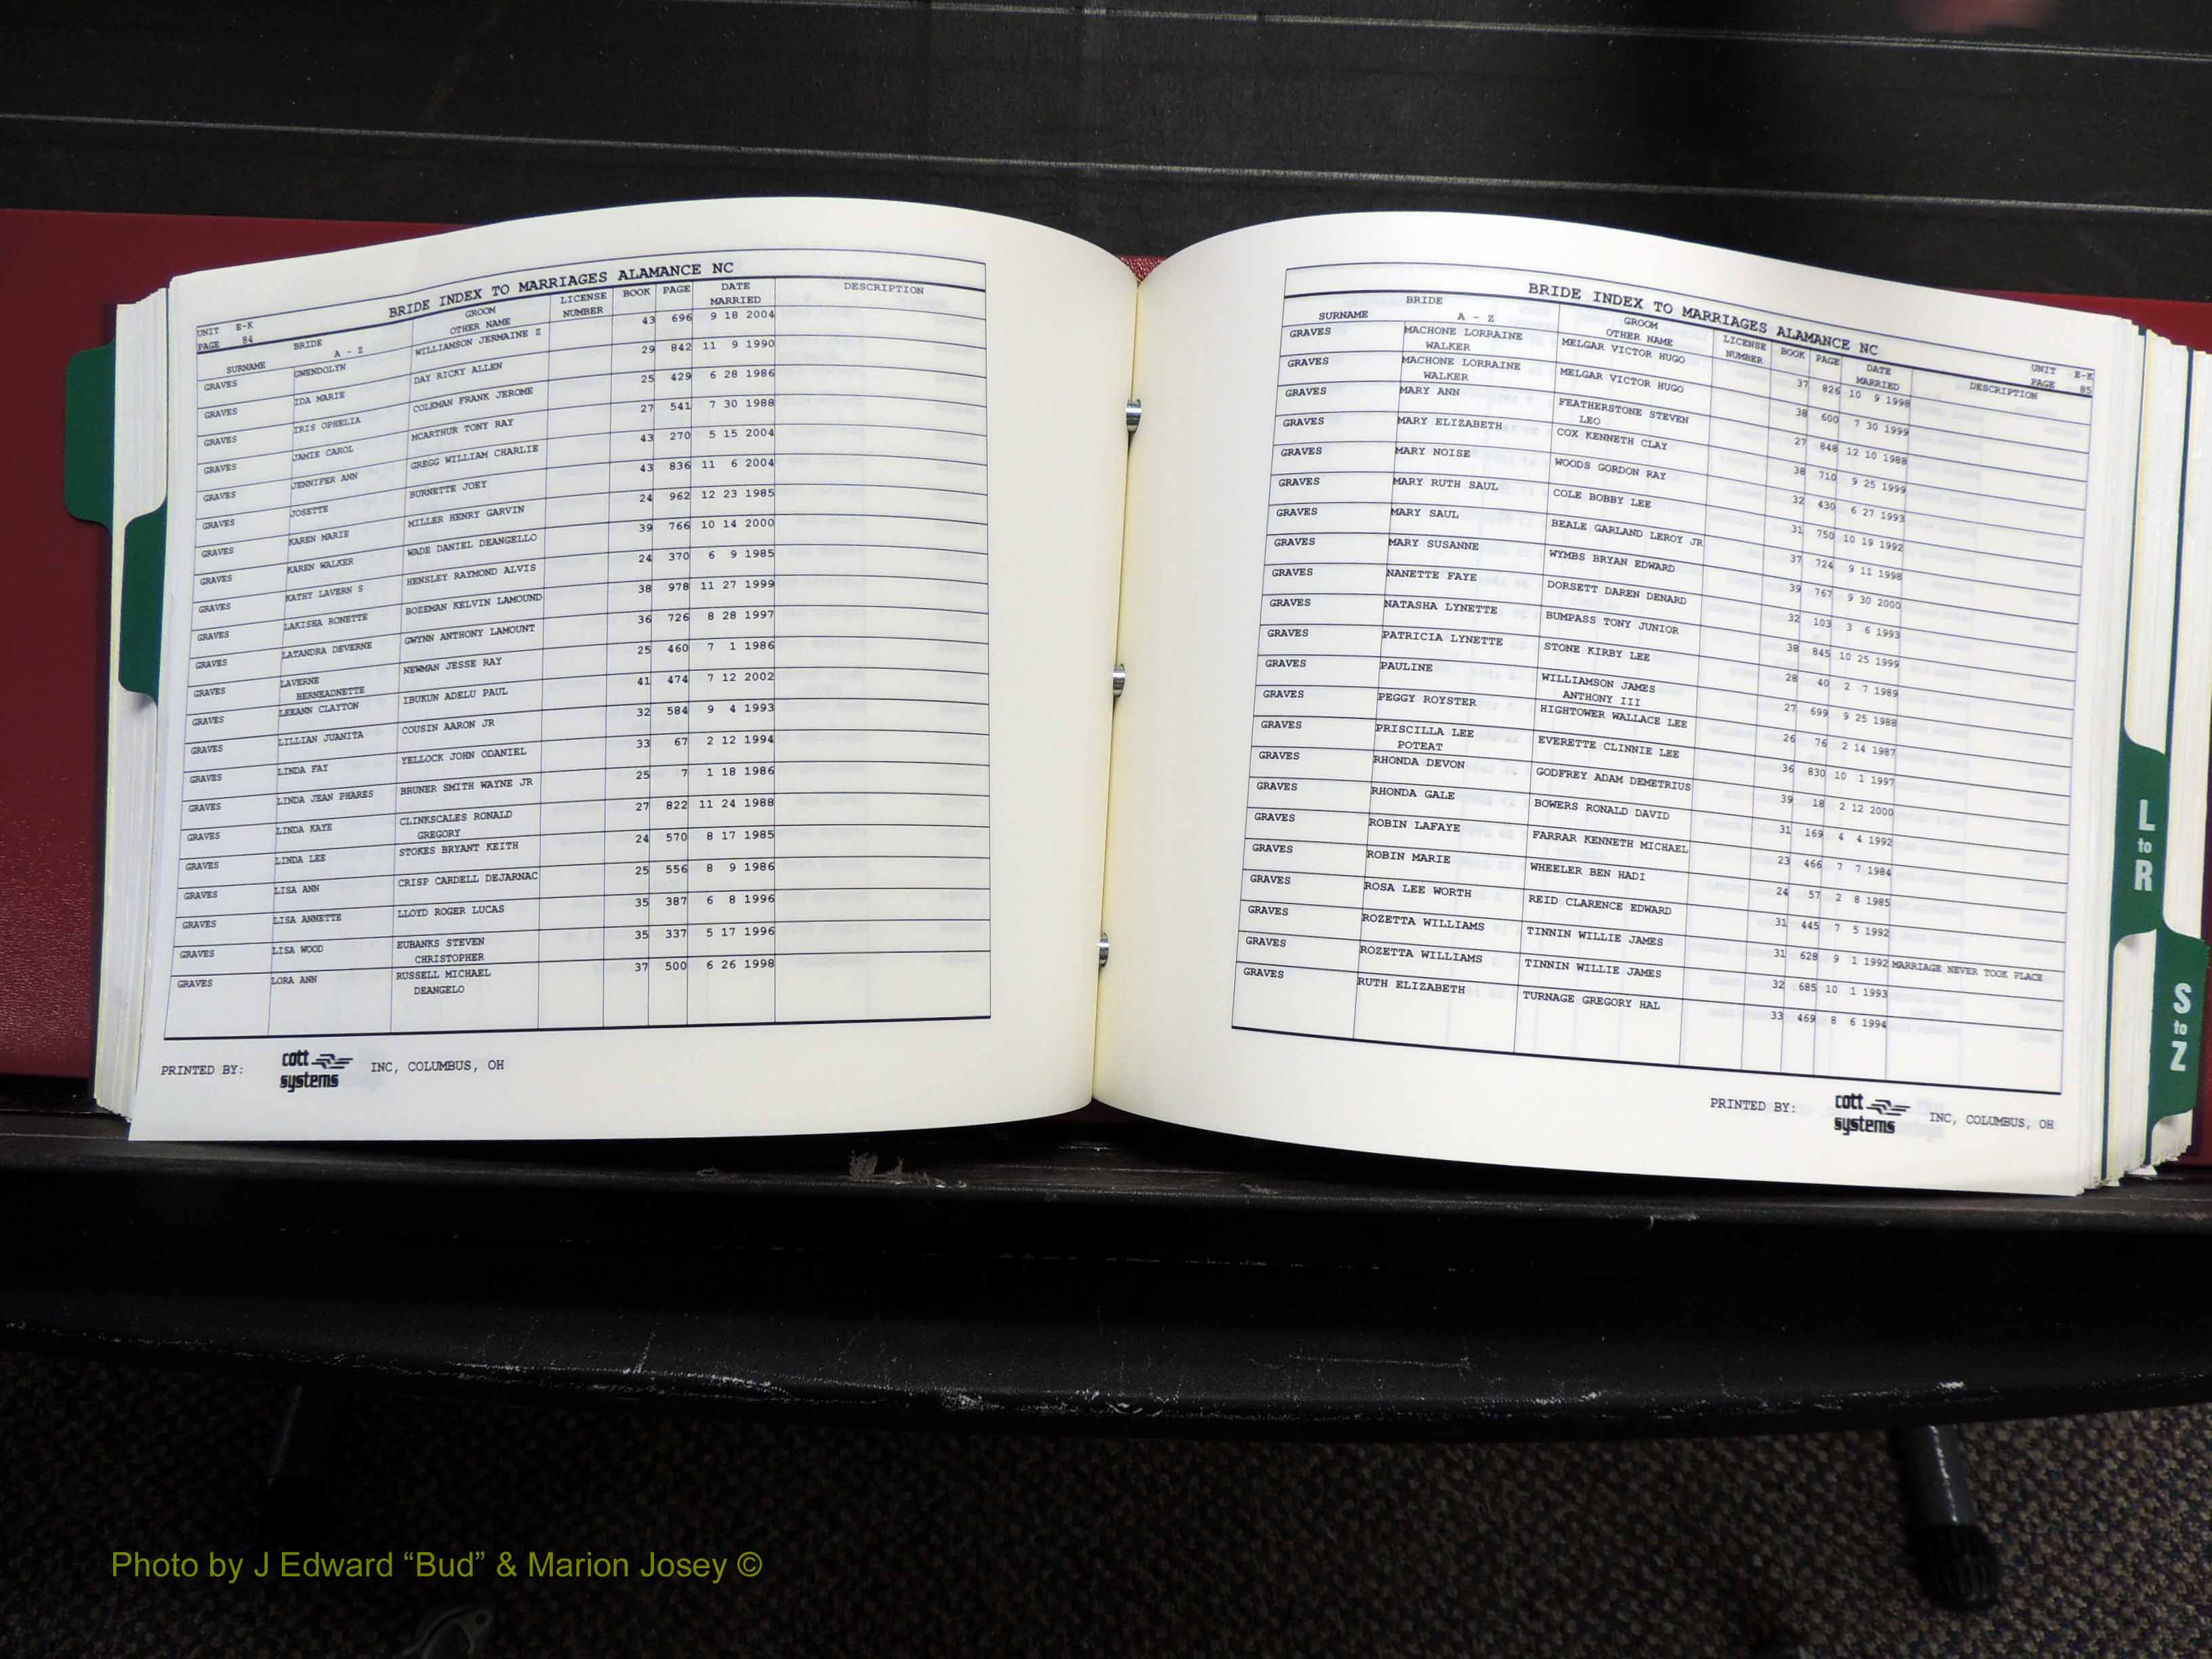 BRIDE INDEX TO MARRIAGES ALAMANCE NC
UNIT E-K
PAGE 84
SURNAME BRIDE A - Z GROOM OTHER NAME LICENSE NUMBER BOOK PAGE DATE MARRIED DESCRIPTION
GRAVES GWENDOLYN WILLIAMSON JERMAINE Z 43 696 9 18 2004
GRAVES IDA MARIE DAY RICKY ALLEN 29 842 11 9 1990
GRAVES IRIS OPHELIA COLEMAN FRANK JEROME 25 429 6 28 1986
GRAVES JAMIE CAROL MCARTHUR TONY RAY 27 541 7 30 1988
GRAVES JENNIFER ANN GREGG WILLIAM CHARLIE 43 270 5 15 2004
GRAVES JOSETTE BURNETTE JOEY 43 836 11 6 2004
GRAVES KAREN MARIE MILLER HENRY GARVIN 24 962 12 23 1985
GRAVES KAREN WALKER WADE DANIEL DEANGELLO 39 766 10 14 2000
GRAVES KATHY LAVERN S HENSLEY RAYMOND ALVIS 24 370 6 9 1985
GRAVES LAKISHA RONETTE BOZEMAN KELVIN LAMOUND 38 978 11 27 1999
GRAVES LATANDRA DEVERNE GWYNN ANTHONY LAMOUNT 36 726 8 28 1997
GRAVES LAVERNE NEWMAN JESSE RAY 25 460 7 1 1986
BERNEADNETTE
GRAVES LEEANN CLAYTON IBUKUN ADELU PAUL 41 474 7 12 2002
GRAVES LILLIAN JUANITA COUSIN AARON JR 32 584 9 4 1993
GRAVES LINDA FAY YELLOCK JOHN ODANIEL 33 67 2 12 1994
GRAVES LINDA JEAN PHARES BRUNER SMITH WAYNE JR 25 7 1 18 1986
GRAVES LINDA KAYE CLINKSCALES RONALD 27 822 11 24 1988
GREGORY
GRAVES LINDA LEE STOKES BRYANT KEITH 24 570 8 17 1985
GRAVES LISA ANN CRISP CARDELL DEJARNAC 25 556 8 9 1986
GRAVES LISA ANNETTE LLOYD ROGER LUCAS 35 387 6 8 1996
GRAVES LISA WOOD EUBANKS STEVEN 35 337 5 17 1996
CHRISTOPHER
GRAVES LORA ANN RUSSELL MICHAEL 37 500 6 26 1998
DEANGELO
PRINTED BY: cott systems INC, COLUMBUS, OH
BRIDE INDEX TO MARRIAGES ALAMANCE NC
UNIT E-K
PAGE 85
SURNAME BRIDE A - Z GROOM OTHER NAME LICENSE NUMBER BOOK PAGE DATE MARRIED DESCRIPTION
GRAVES MACHONE LORRAINE MELGAR VICTOR HUGO 37 826 10 9 1998
WALKER
GRAVES MACHONE LORRAINE MELGAR VICTOR HUGO 38 600 7 30 1999
WALKER
GRAVES MARY ANN FEATHERSTONE STEVEN 27 848 12 10 1988
LEO
GRAVES MARY ELIZABETH COX KENNETH CLAY 38 710 9 25 1999
GRAVES MARY NOISE WOODS GORDON RAY 32 430 6 27 1993
GRAVES MARY RUTH SAUL COLE BOBBY LEE 31 750 10 19 1992
GRAVES MARY SAUL BEALE GARLAND LEROY JR 37 724 9 11 1998
GRAVES MARY SUSANNE WYMBS BRYAN EDWARD 39 767 9 30 2000
GRAVES NANETTE FAYE DORSETT DAREN DENARD 32 103 3 6 1993
GRAVES NATASHA LYNETTE BUMPASS TONY JUNIOR 38 845 10 25 1999
GRAVES PATRICIA LYNETTE STONE KIRBY LEE 28 40 2 7 1989
GRAVES PAULINE WILLIAMSON JAMES 27 699 9 25 1988
ANTHONY III
GRAVES PEGGY ROYSTER HIGHTOWER WALLACE LEE 26 76 2 14 1987
GRAVES PRISCILLA LEE EVERETTE CLINNIE LEE 36 830 10 1 1997
POTEAT
GRAVES RHONDA DEVON GODFREY ADAM DEMETRIUS 39 18 2 12 2000
GRAVES RHONDA GALE BOWERS RONALD DAVID 31 169 4 4 1992
GRAVES ROBIN LAFAYE FARRAR KENNETH MICHAEL 23 466 7 7 1984
GRAVES ROBIN MARIE WHEELER BEN HADI 24 57 2 8 1985
GRAVES ROSA LEE WORTH REID CLARENCE EDWARD 31 445 7 5 1992
GRAVES ROZETTA WILLIAMS TINNIN WILLIE JAMES 31 628 9 1 1992 MARRIAGE NEVER TOOK PLACE
GRAVES ROZETTA WILLIAMS TINNIN WILLIE JAMES 32 685 10 1 1993
GRAVES RUTH ELIZABETH TURNAGE GREGORY HAL 33 469 8 6 1994
PRINTED BY: cott systems INC, COLUMBUS, OH
L to R
S to Z
Photo by J Edward “Bud” & Marion Josey ©